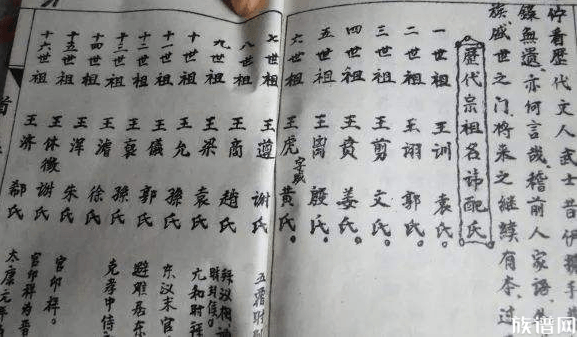 竚看歷代文人武士昔伊攜手
錄無遺亦何言哉稽前人家語
族盛世之门将来之继续有本过
歷代宗祖名讳配氏
一世祖 王训 袁氏。
二世祖 王诩 郭氏。
三世祖 王剪 文氏。
四世祖 王贲 姜氏。
五世祖 王离 殷氏。
六世祖 王虎 字威 黄氏。
七世祖 王遵 谢氏
八世祖 王商 趙氏
九世祖 王梁 袁氏
十世祖 王允 孫氏
十一世祖 王儀 郭氏
十二世祖 王裒 孫氏
十三世祖 王濬 徐氏
十四世祖 王渾 朱氏
十五世祖 王休徵 谢氏
十六世祖 王济 郗氏
東汉末官
避难居东
克孝中侍
官印祥。
官印祥为晋
太康元年
族谱网